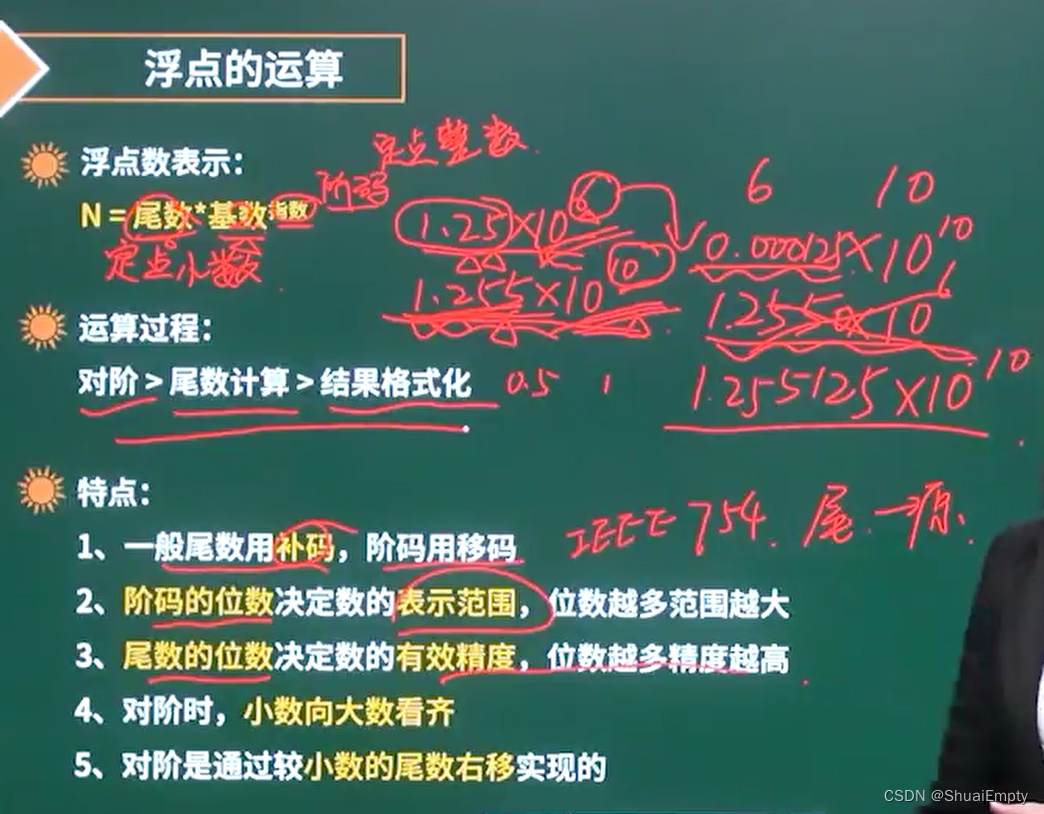 浮点的运算
浮点数表示：
定点整数
N = 尾数*基数指数
阶码
定点小数
1.25×10 6
1.255×10 10
6 10
0.000125×10 10
1.255×10
1.255125×10 10
运算过程：
对阶 > 尾数计算 > 结果格式化
0.5 1
特点：
1、一般尾数用补码，阶码用移码
IEEE 754. 尾 一源
2、阶码的位数决定数的表示范围，位数越多范围越大
3、尾数的位数决定数的有效精度，位数越多精度越高
4、对阶时，小数向大数看齐
5、对阶是通过较小数的尾数右移实现的
CSDN @ShuaiEmpty